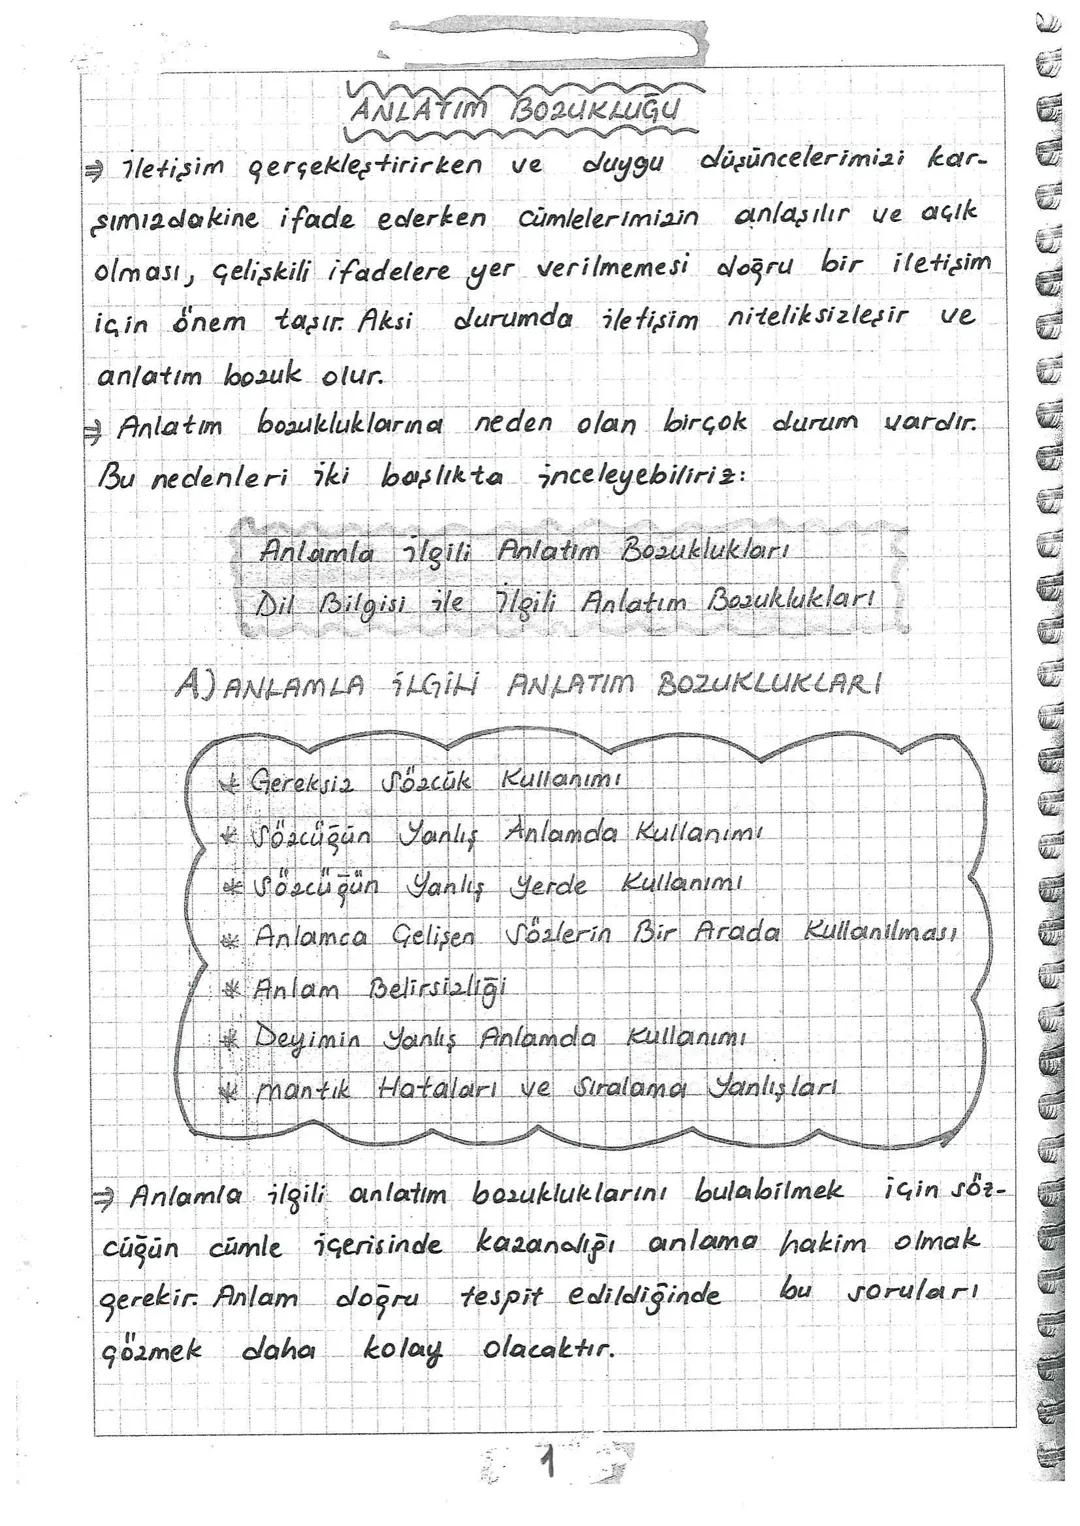 ANLATIM BOZUKLUĞU
⇒ İletişim gerçekleştirirken ve duygu düşüncelerimizi kar-
şımızdakine ifade ederken cümlelerimizin anlaşılır ve açık
olması, çelişkili ifadelere yer verilmemesi doğru bir iletişim
için önem taşır. Aksi durumda iletişim niteliksizleşir ve
anlatım bozuk olur.
⇒ Anlatım bozukluklarına neden olan birçok durum vardır.
Bu nedenleri iki başlıkta inceleyebiliriz:
Anlamla İlgili Anlatım Bozuklukları
Dil Bilgisi ile İlgili Anlatım Bozuklukları
A) ANLAMLA İLGİLİ ANLATIM BOZUKLUKLARI
* Gereksiz Sözcük Kullanımı
* Sözcüğün Yanlış Anlamda Kullanımı
* Sözcüğün Yanlış Yerde Kullanımı
* Anlamca Çelişen Sözlerin Bir Arada Kullanılması
* Anlam Belirsizliği
* Deyimin Yanlış Anlamda Kullanımı
* Mantık Hataları ve Sıralama Yanlışları
⇒ Anlamla ilgili anlatım bozukluklarını bulabilmek için söz-
cüğün cümle içerisinde kazandığı anlama hakim olmak
gerekir. Anlam doğru tespit edildiğinde bu soruları
çözmek daha kolay olacaktır.
1